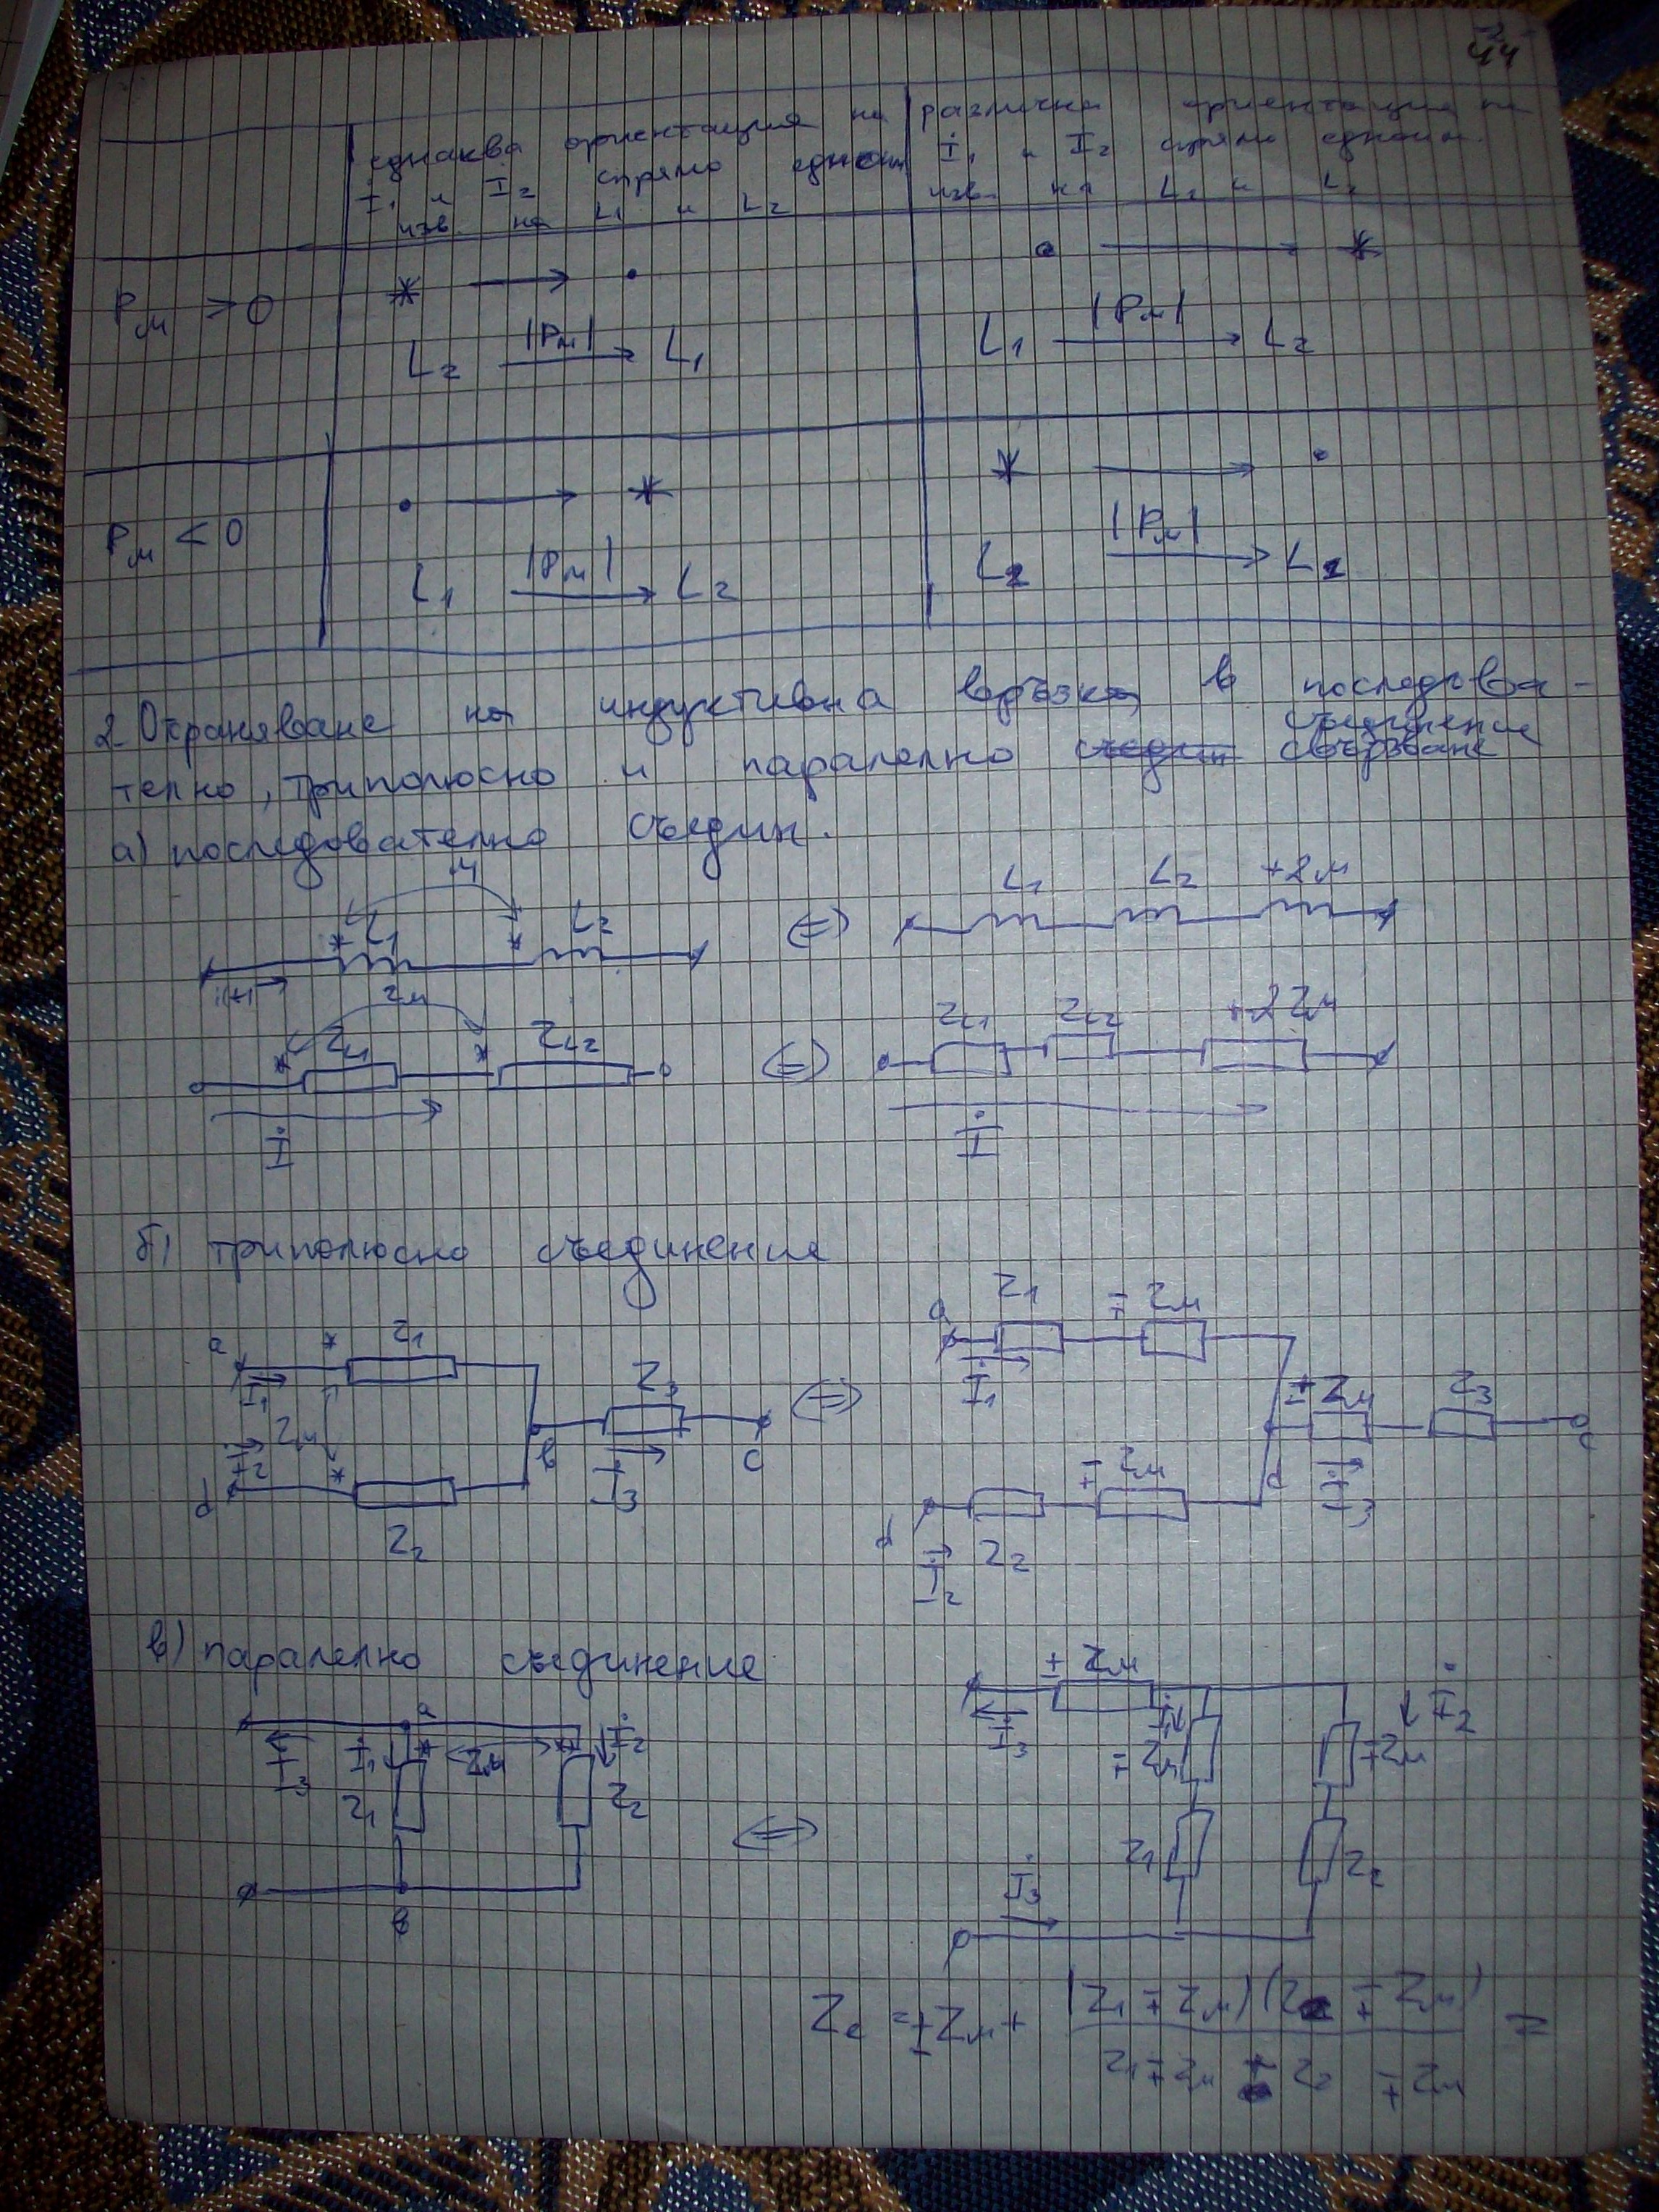 44
еднаква ориентация на
İ₁ и İ₂ спрямо едноим.
изв. на L₁ и L₂
различна ориентация на
İ₁ и İ₂ спрямо едноим.
изв. на L₁ и L₂
Pм > 0
* → •
L₂ |Pм| → L₁
• → *
L₁ |Pм| → L₂
Pм < 0
• → *
L₁ |Pм| → L₂
* → •
L₂ |Pм| → L₁
2. Отраняване на индуктивна връзка в последова-
телно, триполюсно и паралелно съединение свързване
а) последователно съедин.
M
* L₁ * L₂
i(t)
⇔
L₁ L₂ +2M
Zм
* ZL1 * ZL2
İ
⇔
ZL1 ZL2 +2Zм
İ
б) триполюсно съединение
a * Z₁
İ₁
Zм
İ₂
d * Z₂
b Z₃ c
İ₃
⇔
a Z₁ ∓ Zм
İ₁
± Zм Z₃
d c
İ₃
∓ Zм
d Z₂
İ₂
в) паралелно съединение
a
İ₃ İ₁ * Zм * İ₂
Z₁ Z₂
b
⇔
± Zм
İ₃ İ₁ İ₂
∓ Zм ∓ Zм
Z₁ Z₂
İ₃
Ze = ±Zм + (Z₁ ∓ Zм)(Z₂ ∓ Zм) =
Z₁ ∓ Zм + Z₂ ∓ Zм